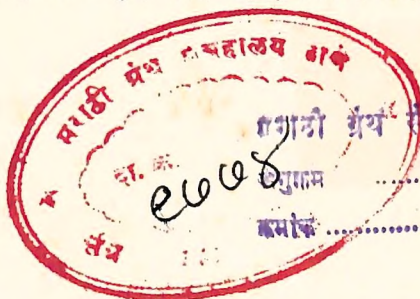 मराठी ग्रंथ संग्रहालय ठाणे
दा. क्र.
९७७४
मराठी ग्रंथ
अनुक्रम ........
क्रमांक ............